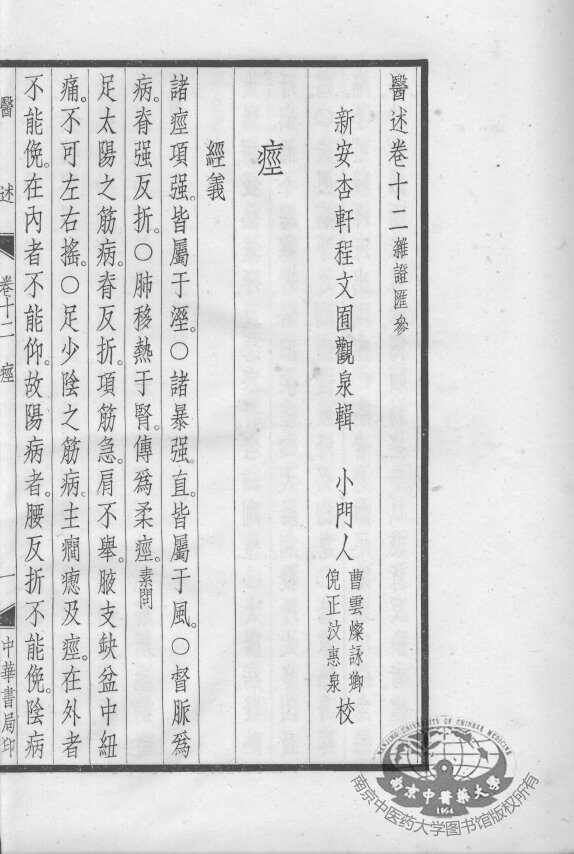 醫述卷十二雜證匯參
新安杏軒程文囿觀泉輯　小門人曹雲燦詠鄉倪正汶惠泉校
痙
經義
諸痙項强。皆屬于溼。〇諸暴强直。皆屬于風。〇督脈爲
病。脊强反折。〇肺移熱于腎。傳爲柔痙。素問
足太陽之筋病。脊反折。項筋急。肩不舉。腋支缺盆中紐
痛。不可左右搖。〇足少陰之筋病。主癇瘛及痙。在外者
不能俛。在內者不能仰。故陽病者。腰反折不能俛。陰病
醫述　卷十二　痙　一　中華書局印
NANJING UNIVERSITY OF CHINESE MEDICINE
南京中醫藥大學
1954
南京中医药大学图书馆版权所有